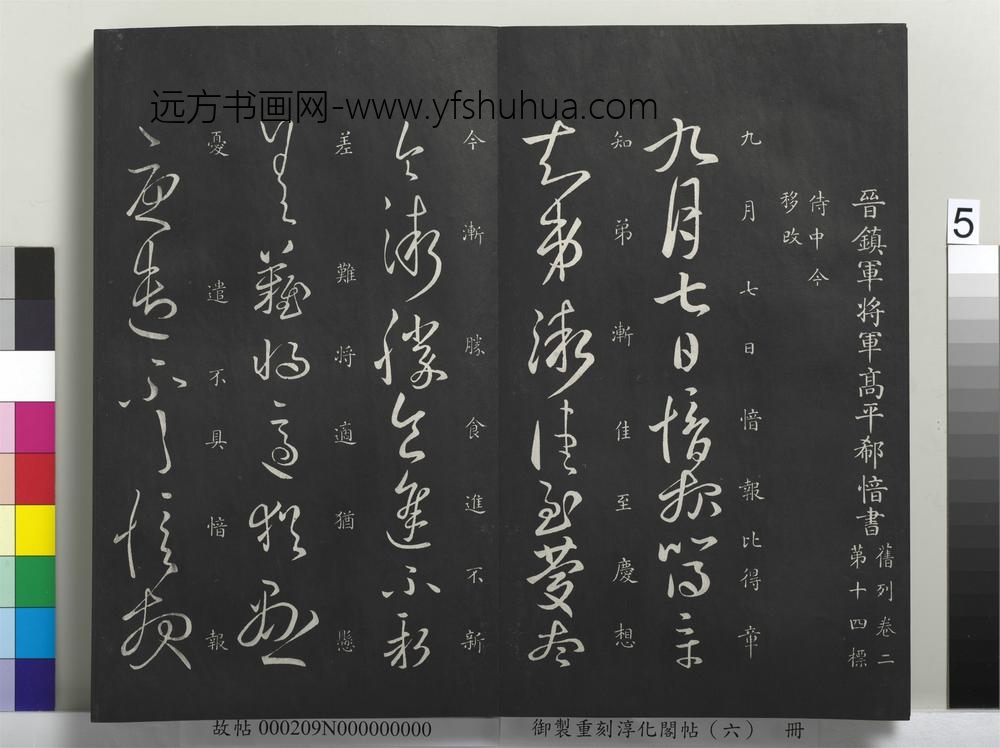 远方书画网-www.yfshuhua.com
5
晉鎮軍將軍高平郗愔書
舊列卷二
第十四標
侍中今
移改
九月七日愔報比得章
九月七日愔報比得章
知弟漸佳至慶想
知弟漸佳至慶想
今漸勝食進不新
今漸勝食進不新
差難將適猶懸
差難將適猶懸
憂遣不具愔報
憂遣不具愔報
故帖 000209N000000000
御製重刻淳化閣帖（六） 冊